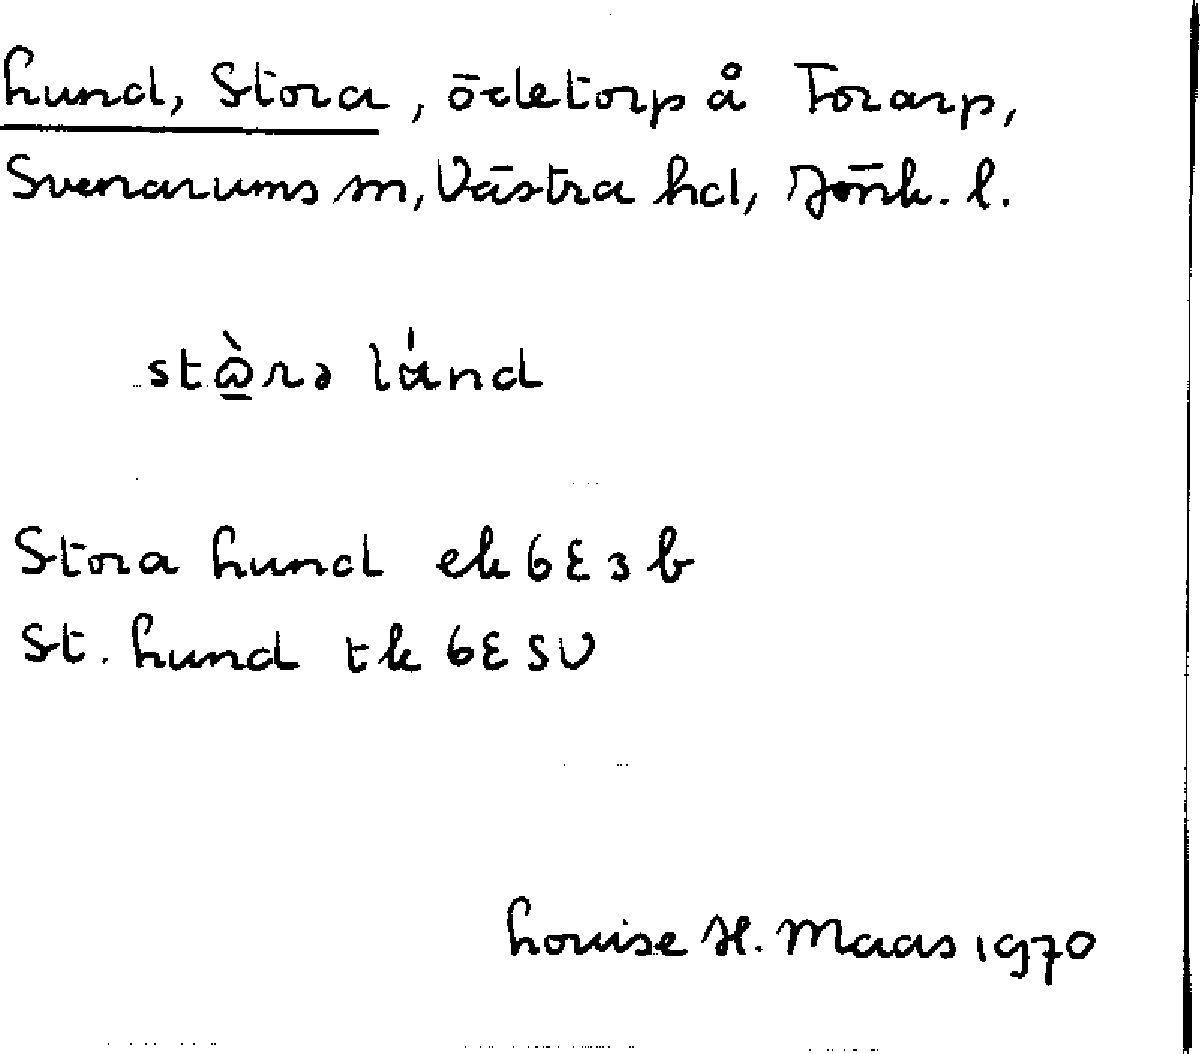 Lund, Stora, ödetorp å Forarp,
Svenarums sn, Västra hd, Jönk. l.
stɷ̱̀rə lánd
Stora Lund ek 6E3b
St. Lund tk 6E SV
Louise H. Maas 1970